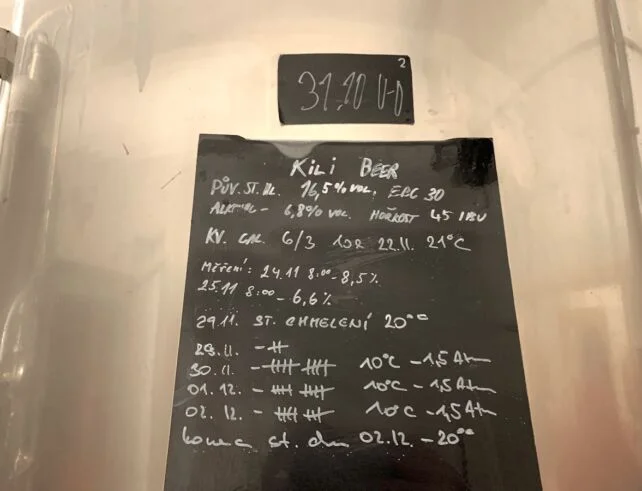 2
31.10 U-D
KILI BEER
PŮV. ST. HL. 16,5% VOL. EBC 30
ALKOHOL - 6,8% VOL HOŘKOST 45 IBU
KV. 6/3 22.11. 21°C
MĚŘENÍ: 24.11 8:00 - 8,5%
25.11 8:00 - 6,6%
29.11. ST. CHMELENÍ 20°°
29.11. -
30.11. - 10°C - 1,5 Atm
01.12. - 10°C - 1,5 Atm
02.12. - 10°C - 1,5 Atm
st. 02.12. - 20°°